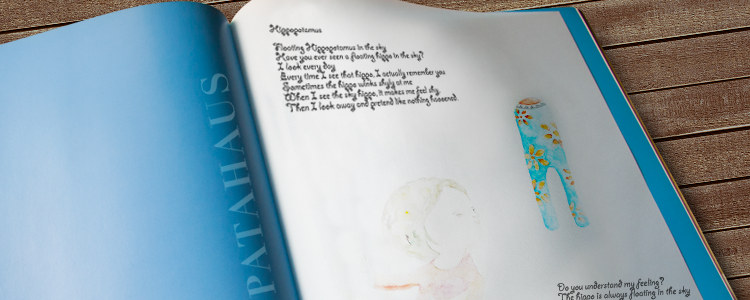 PATAHAUS
Hippopotamus
Floating Hippopotamus in the sky
Have you ever seen a floating hippo in the sky?
I look every day
Every time I see that hippo, I actually remember you
Sometimes the hippo winks shyly at me
When I see the sky hippo, it makes me feel shy.
Then I look away and pretend like nothing happened.
Do you understand my feeling?
The hippo is always floating in the sky